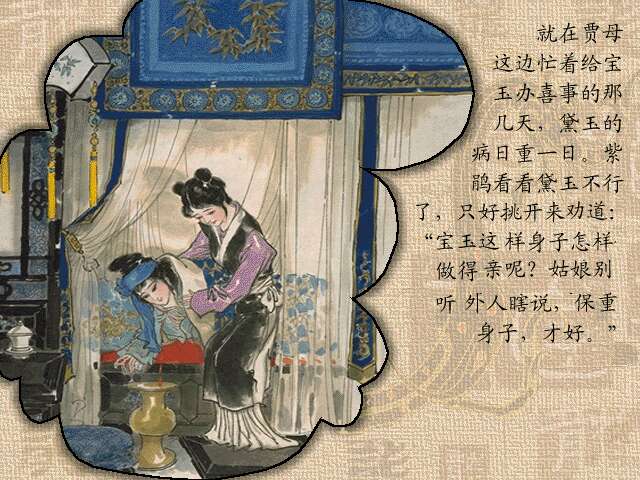 就在贾母
这边忙着给宝
玉办喜事的那
几天，黛玉的
病日重一日。紫
鹃看看黛玉不行
了，只好挑开来劝道：
“宝玉这样身子怎样
做得亲呢？姑娘别
听外人瞎说，保重
身子，才好。”